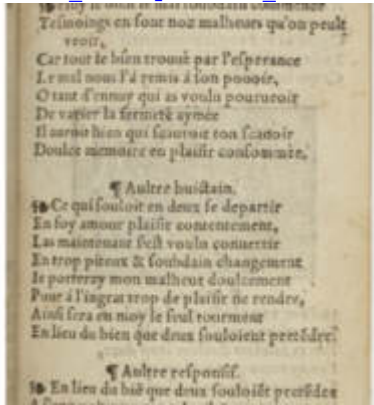 Tesmoings en sont noz malheurs qu'on peult
veoir,
Car tout le bien trouué par l'esperance
Le mal nous l'à remis à son pouoir,
O tant d'ennuy qui as voulu pourueoir
De varier la fermeté aymée
Il auroit bien qui sçauroit ton sçauoir
Doulce memoire en plaisir consommée.
¶ Aultre huictain.
Ce qui souloit en deux se departir
En soy amour plaisir contentement,
Las maintenant s'est voulu conuertir
En trop piteux & soubdain changement
Ie porteray mon malheur doulcement
Pour à l'ingrat trop de plaisir ne rendre,
Ainsi sera en moy le seul tourment
En lieu du bien que deux souloient pretẽdre.
¶ Aultre responsif.
En lieu du biẽ que deux souloiẽt pretẽdre